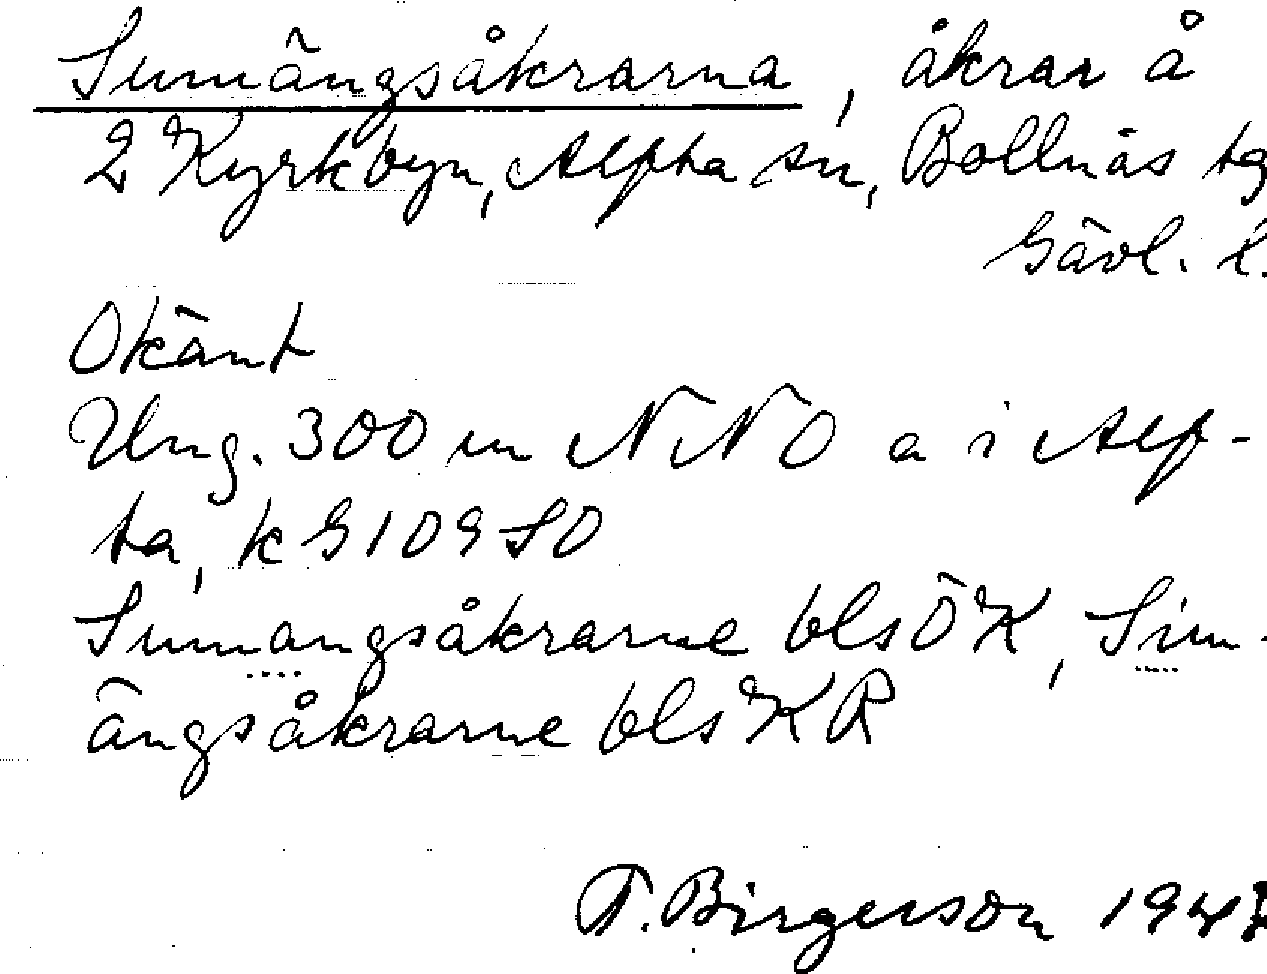 Sumängsåkrarna, åkrar å
2 Kyrkbyn, Alfta sn, Bollnäs tg
Gävl. l.
Okänt
Ung. 300 m NNO a i Alf-
ta, k G 109 SO
Sumangsåkrarne bls ÖK, Sim-
ängsåkrarne bls KR
T. Birgerson